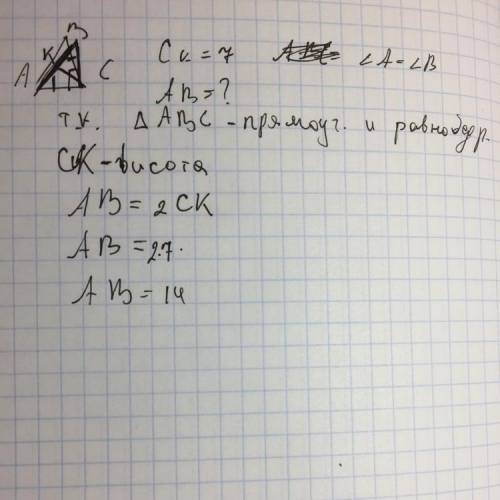 B
K
A C
Cк = 7 ∠A = ∠B
AB = ?
т.к. Δ ABC - прямоуг. и равнобедр.
CK - висота
AB = 2 CK
AB = 2·7
AB = 14